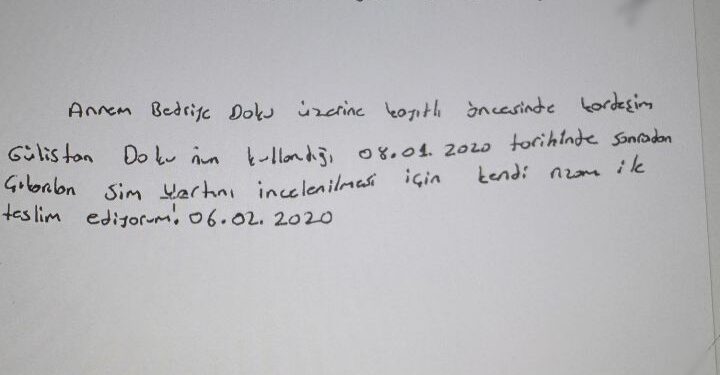 Annem Bedriye Doku üzerine kayıtlı öncesinde kardeşim
Gülistan Doku nun kullandığı 08.01.2020 tarihinde sonradan
Çıkarılan Sim kartını incelenilmesi için kendi rızam ile
teslim ediyorum. 06.02.2020